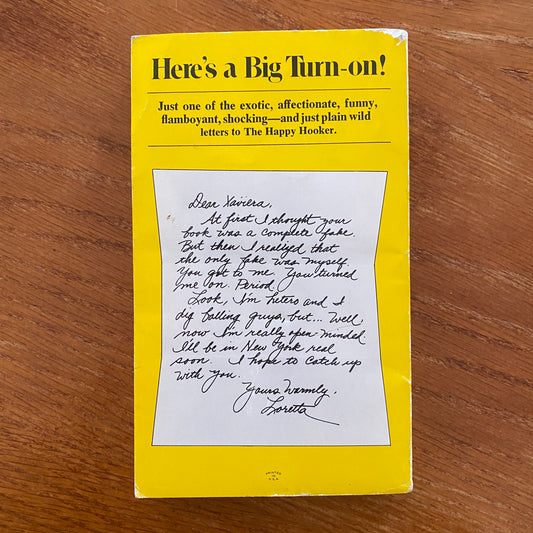 Here's a Big Turn-on!
Just one of the exotic, affectionate, funny,
flamboyant, shocking—and just plain wild
letters to The Happy Hooker.
Dear Xaviera,
At first I thought your
book was a complete fake.
But then I realized that
the only fake was myself.
You got to me. You turned
me on. Period.
Look, I'm hetero and I
dig balling guys, but... Well,
now I'm really open-minded.
I'll be in New York real
soon. I hope to catch up
with you.
Yours Warmly,
Loretta
PRINTED
IN
U.S.A.